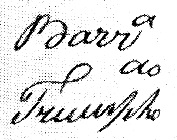 Barr.a
do
Triumpho